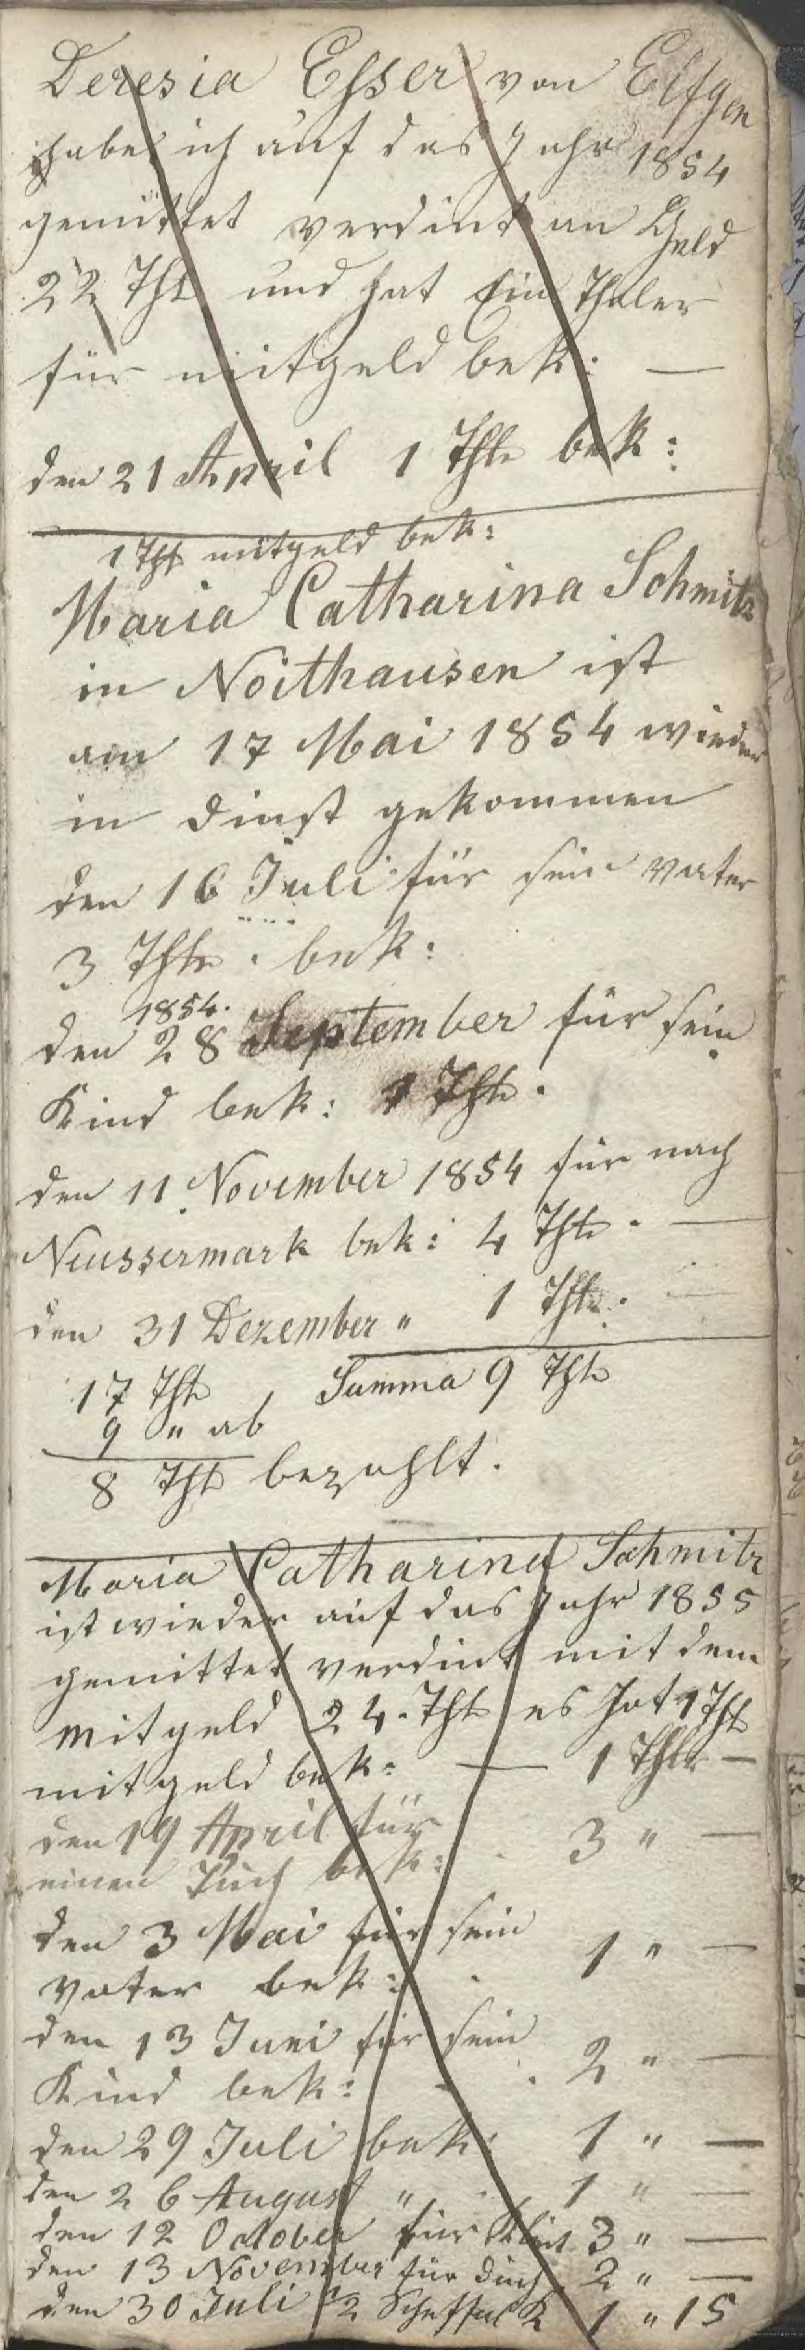 Deresia Esser von Elfgen
habe ich auf das Jahr 1854
gemittet verdint an Geld
22 Thl und hat Ein Thaler
für mitgeld bek: —
den 21 April 1 Thlr bek:
1 Thl mitgeld bek:
Maria Catharina Schmitz
in Noithausen ist
am 17 Mai 1854 wieder
in dinst gekommen
den 16 Juli für sein vater
3 Thlr. bek:
1854.
den 28 September für sein
Kind bek: 1 Thlr.
den 11 November 1854 für nach
Neussermark bek: 4 Thlr. —
den 31 Dezember " 1 Thlr. —
17 Thlr Summa 9 Thlr
9 " ab
8 Thlr bezahlt.
Maria Catharina Schmitz
ist wieder auf das Jahr 1855
gemittet verdint mit dem
mitgeld 24. Thlr es hat 1 Thlr
mitgeld bek: — 1 Thlr —
den 19 April für
einen Tuch bek: 3 " —
den 3 Mai für sein
vater bek: 1 " —
den 13 Juni für sein
Kind bek: 2 " —
den 29 Juli bek: 1 " —
den 26 August " 1 " —
den 12 October für 3 " —
den 13 November für duch 2 " —
den 30 Juli 1/2 Scheffel K 1 " 15